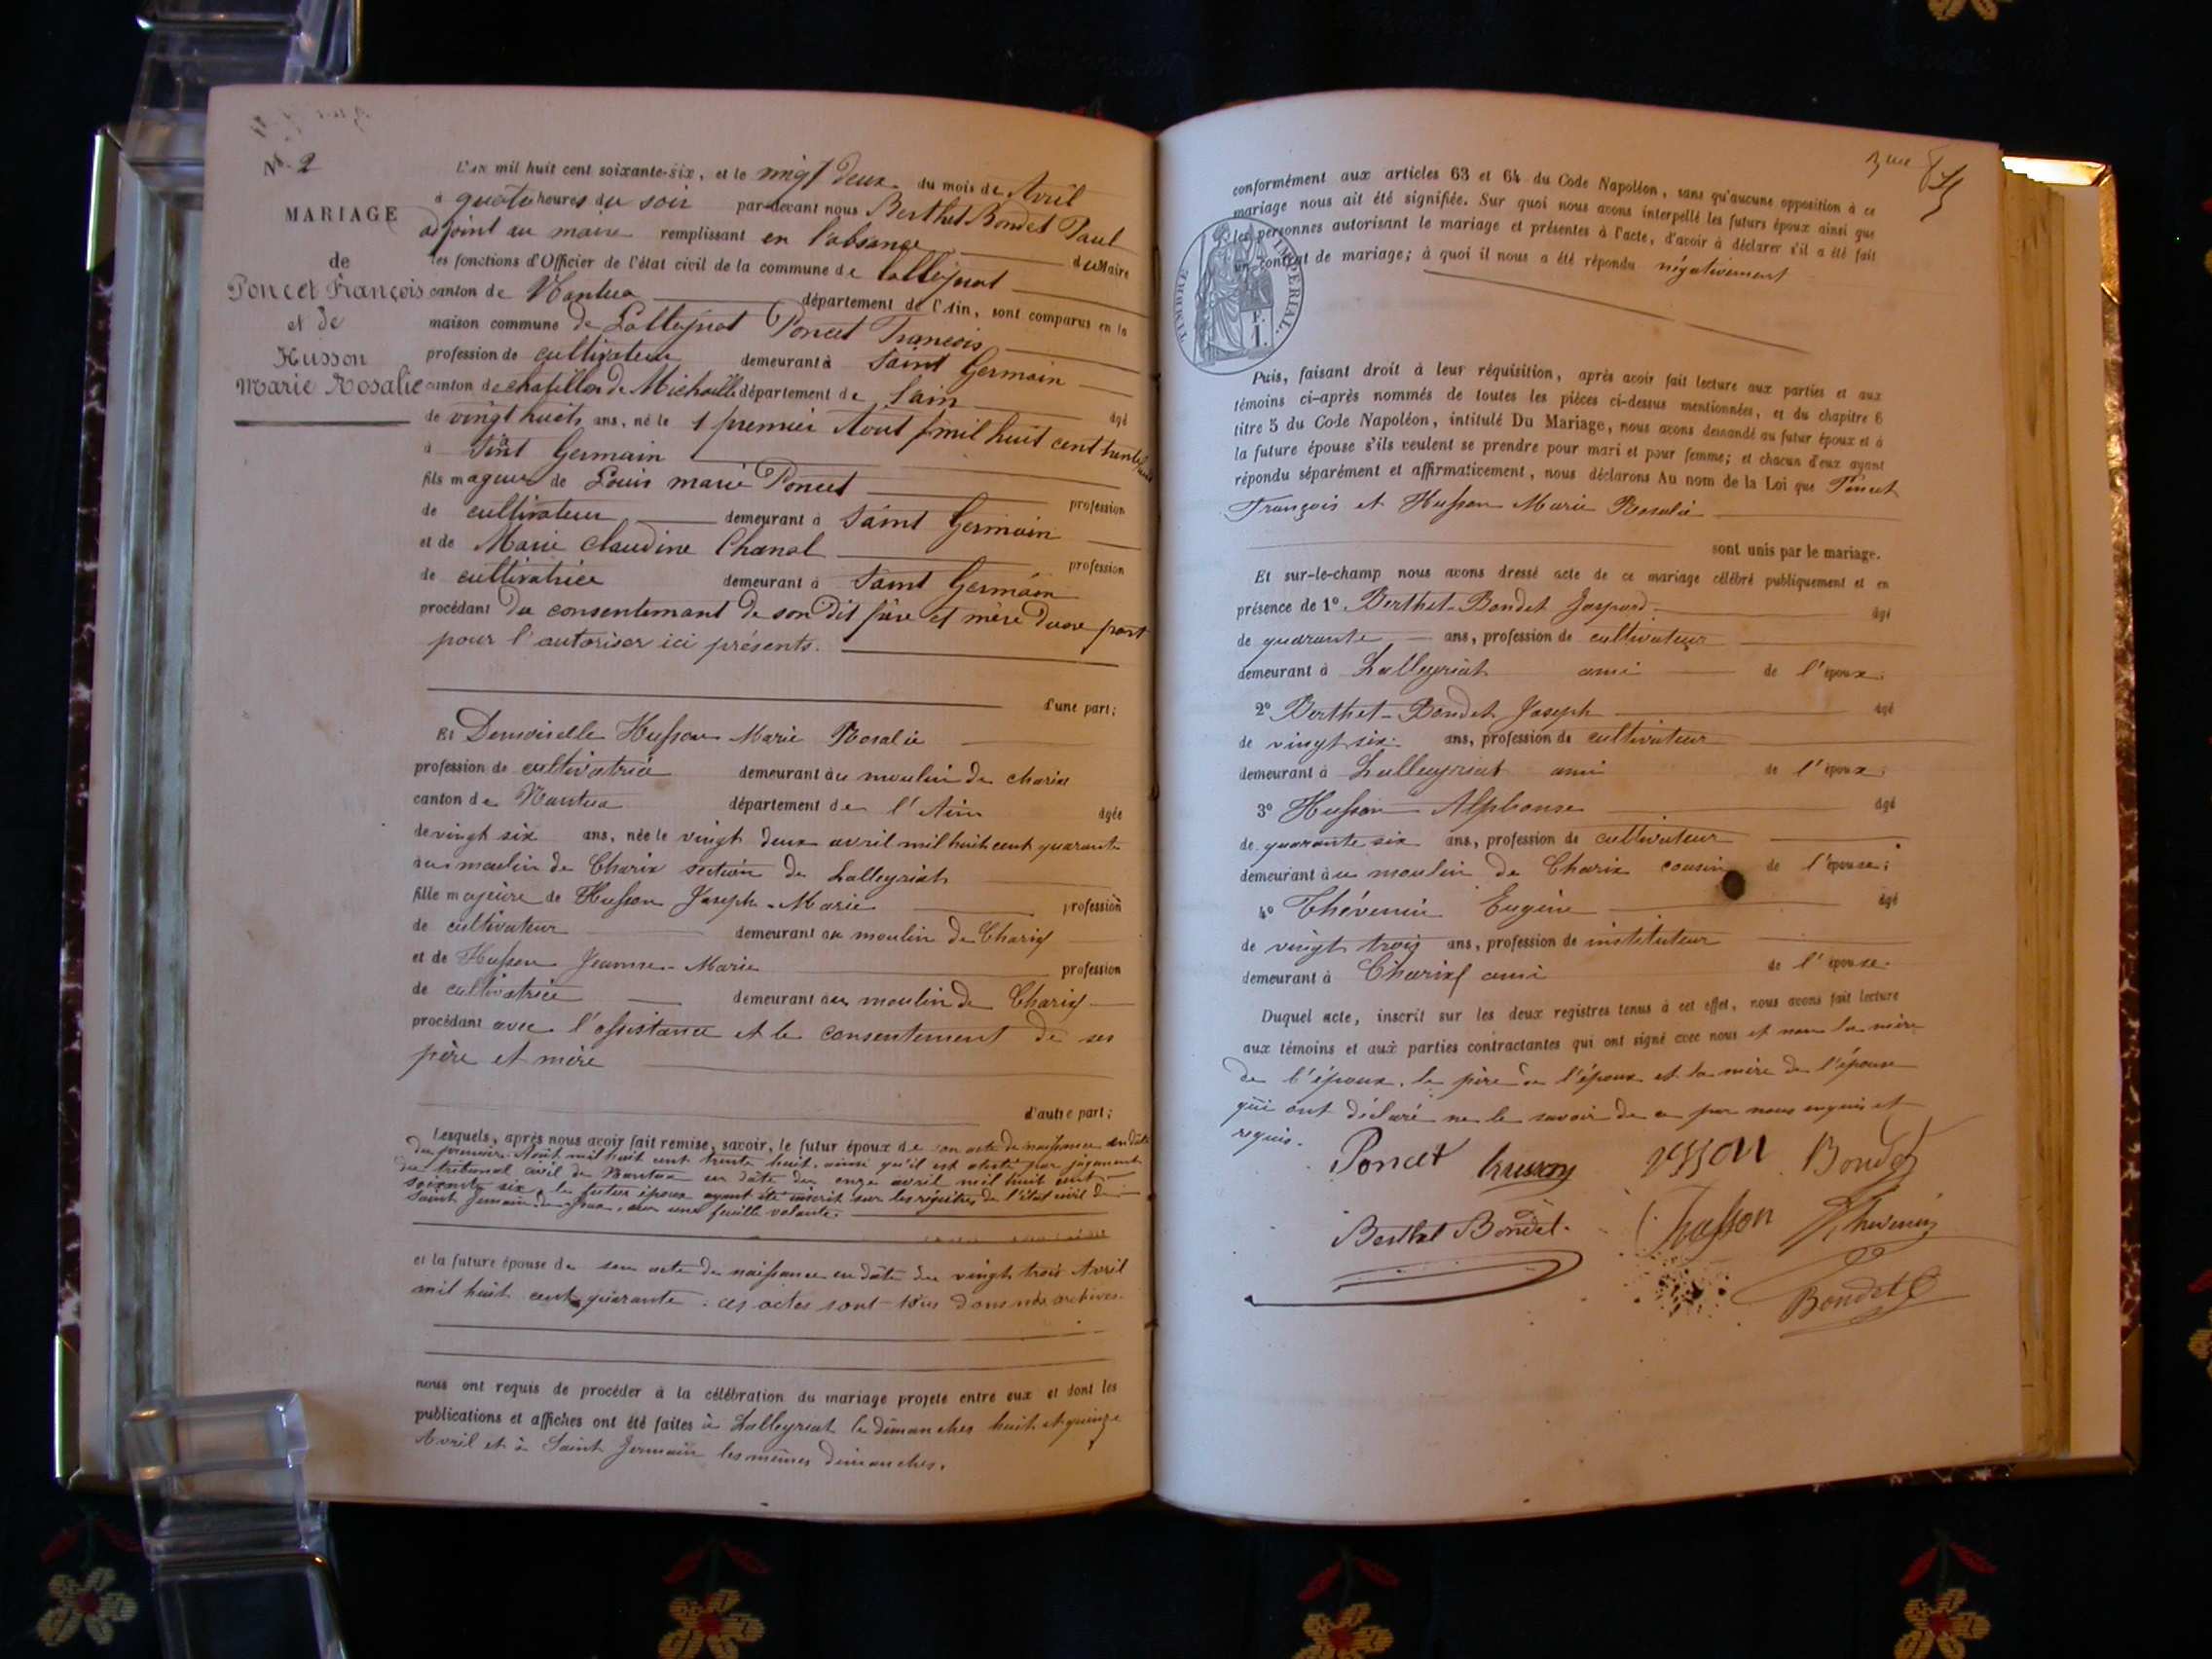 N° 2
MARIAGE
de
Poncet François
et de
Husson
Marie Rosalie
L'AN mil huit cent soixante-six, et le vingt deux du mois de Avril
à quatre heures du soir par-devant nous Berthet Bondet Paul
adjoint au maire remplissant en l'absence du Maire
les fonctions d'Officier de l'état civil de la commune de Lalleyriat
canton de Nantua département de l'Ain, sont comparus en la
maison commune de Lalleyriat Poncet François
profession de cultivateur demeurant à Saint Germain
canton de chatillon de Michaille département de l'ain âgé
de vingt huit ans, né le 1 premier Aout mil huit cent trente huit
à Saint Germain
fils mageur de Louis marie Poncet profession
de cultivateur demeurant à Saint Germain
et de Marie Claudine Chanal profession
de cultivatrice demeurant à Saint Germain
procédant du consentemant de son dit père et mère d'une part
pour l'autoriser ici présents.
d'une part;
Et Demoiselle Husson Marie Rosalie
profession de cultivatrice demeurant au moulin de charix
canton de Nantua département de l'Ain âgée
de vingt six ans, née le vingt deux avril mil huit cent quarante
au moulin de Charix section de Lalleyriat
fille majeure de Husson Joseph-Marie profession
de cultivateur demeurant au moulin de Charix
et de Husson Jeanne-Marie profession
de cultivatrice demeurant au moulin de Charix
procédant avec l'assistance et le consentement de ses
père et mère
d'autre part;
Lesquels, après nous avoir fait remise, savoir, le futur époux de son acte de naissance en date
du premier Août mil huit cent trente huit, ainsi qu'il est attesté par jugement
du tribunal civil de Nantua en date du onze avril mil huit cent
soixante six, le futur époux ayant été inscrit sur les registres de l'état civil de
Saint Germain de Joux, sur une feuille volante.
et la future épouse de son acte de naissance en date du vingt trois Avril
mil huit cent quarante. ces actes sont tous dans nos archives.
nous ont requis de procéder à la célébration du mariage projeté entre eux et dont les
publications et affiches ont été faites à Lalleyriat le dimanches huit et quinze
Avril et à Saint Germain les mêmes dimanches.
conformément aux articles 63 et 64 du Code Napoléon, sans qu'aucune opposition à ce
mariage nous ait été signifiée. Sur quoi nous avons interpellé les futurs époux ainsi que
les personnes autorisant le mariage et présentes à l'acte, d'avoir à déclarer s'il a été fait
un contrat de mariage; à quoi il nous a été répondu négativement
TIMBRE IMPÉRIAL.
F.
1.
Puis, faisant droit à leur réquisition, après avoir fait lecture aux parties et aux
témoins ci-après nommés de toutes les pièces ci-dessus mentionnées, et du chapitre 6
titre 5 du Code Napoléon, intitulé Du Mariage, nous avons demandé au futur époux et à
la future épouse s'ils veulent se prendre pour mari et pour femme; et chacun d'eux ayant
répondu séparément et affirmativement, nous déclarons Au nom de la Loi que Poncet
François et Husson Marie Rosalie
sont unis par le mariage.
Et sur-le-champ nous avons dressé acte de ce mariage célébré publiquement et en
présence de 1° Berthet-Bondet Gaspard âgé
de quarante ans, profession de cultivateur
demeurant à Lalleyriat ami de l'époux;
2° Berthet-Bondet Joseph âgé
de vingt six ans, profession de cultivateur
demeurant à Lalleyriat ami de l'époux;
3° Husson Alphonse âgé
de quarante six ans, profession de cultivateur
demeurant au moulin de Charix cousin de l'épouse;
4° Thévenin Eugène âgé
de vingt trois ans, profession de instituteur
demeurant à Charix ami de l'épouse.
Duquel acte, inscrit sur les deux registres tenus à cet effet, nous avons fait lecture
aux témoins et aux parties contractantes qui ont signé avec nous et non la mère
de l'époux, le père de l'époux et la mère de l'épouse
qui ont déclaré ne le savoir de ce par nous enquis et
requis.
Poncet husson usson Bondet
Berthet Bondet husson Thévenin
Bondet